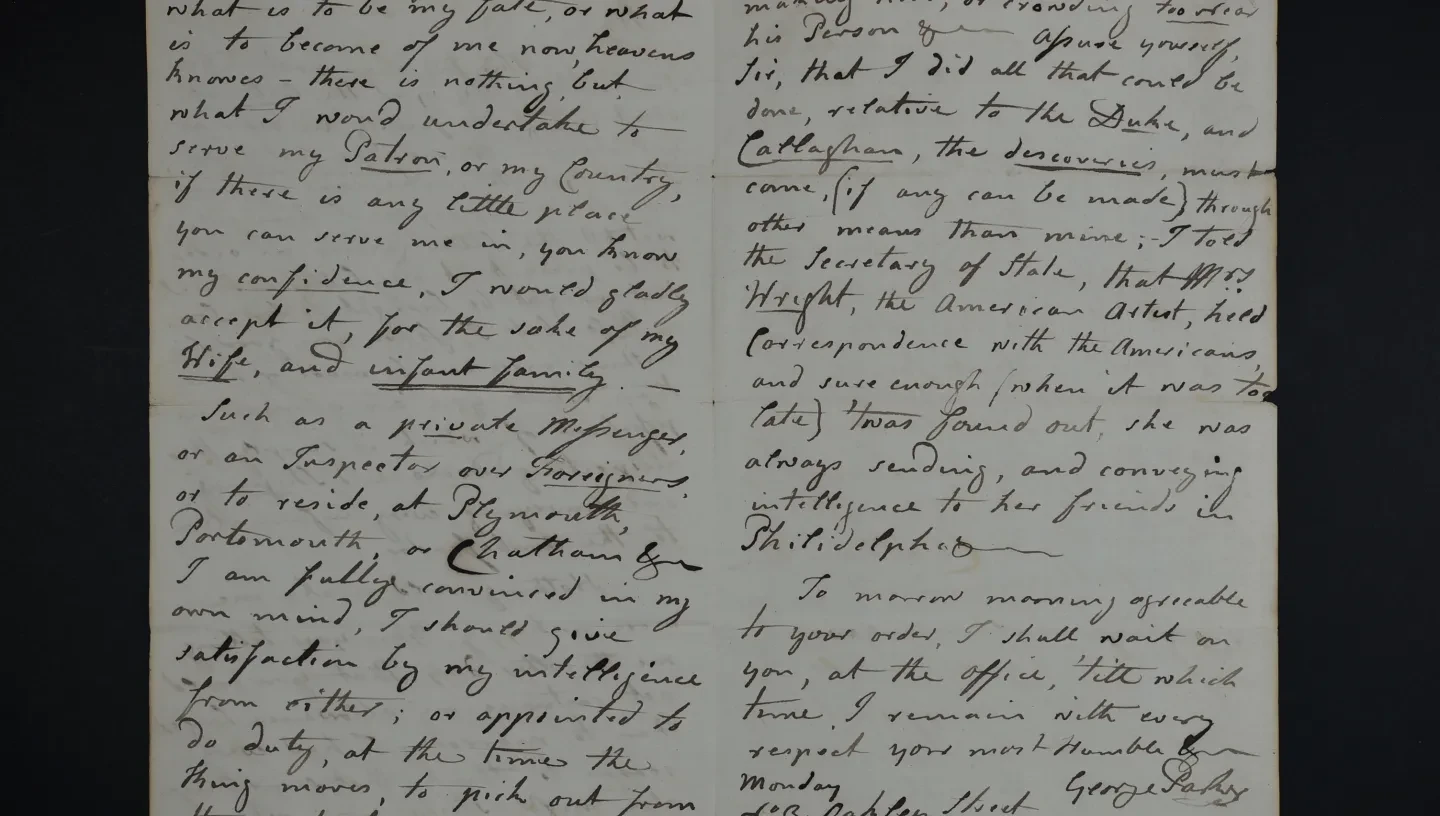 what is to be my fate, or what
is to become of me now, heavens
knowes - there is nothing, but
what I woud undertake to
serve my Patron, or my Country,
if there is any little place
you can serve me in, you know
my confidence, I would gladly
accept it, for the sake of my
Wife, and infant family. —
Such as a private Messenger,
or an Inspector over Foreigners,
or to reside, at Plymouth,
Portsmouth, or Chatham &c
I am fully convinced in my
own mind, I should give
satisfaction by my intelligence
from either; or appointed to
do duty, at the time the
thing moves, to pick out from
making
or crouding too near
his Person &c — Assure yourself,
Sir, that I did all that could be
done, relative to the Duke, and
Callaghan, the descoveries, must
come, (if any can be made) through
other means than mine; - I told
the Secretary of State, that Mrs
Wright, the American Artist, held
Correspondence with the Americans,
and sure enough (when it was too
late) 'twas found out, she was
always sending, and conveying
intelligence to her friends in
Philidelphia
To morrow morning agreeable
to your order, I shall wait on
you, at the office, 'till which
time I remain with every
respect your most Humble &c
Monday George Parker
Oakley Street